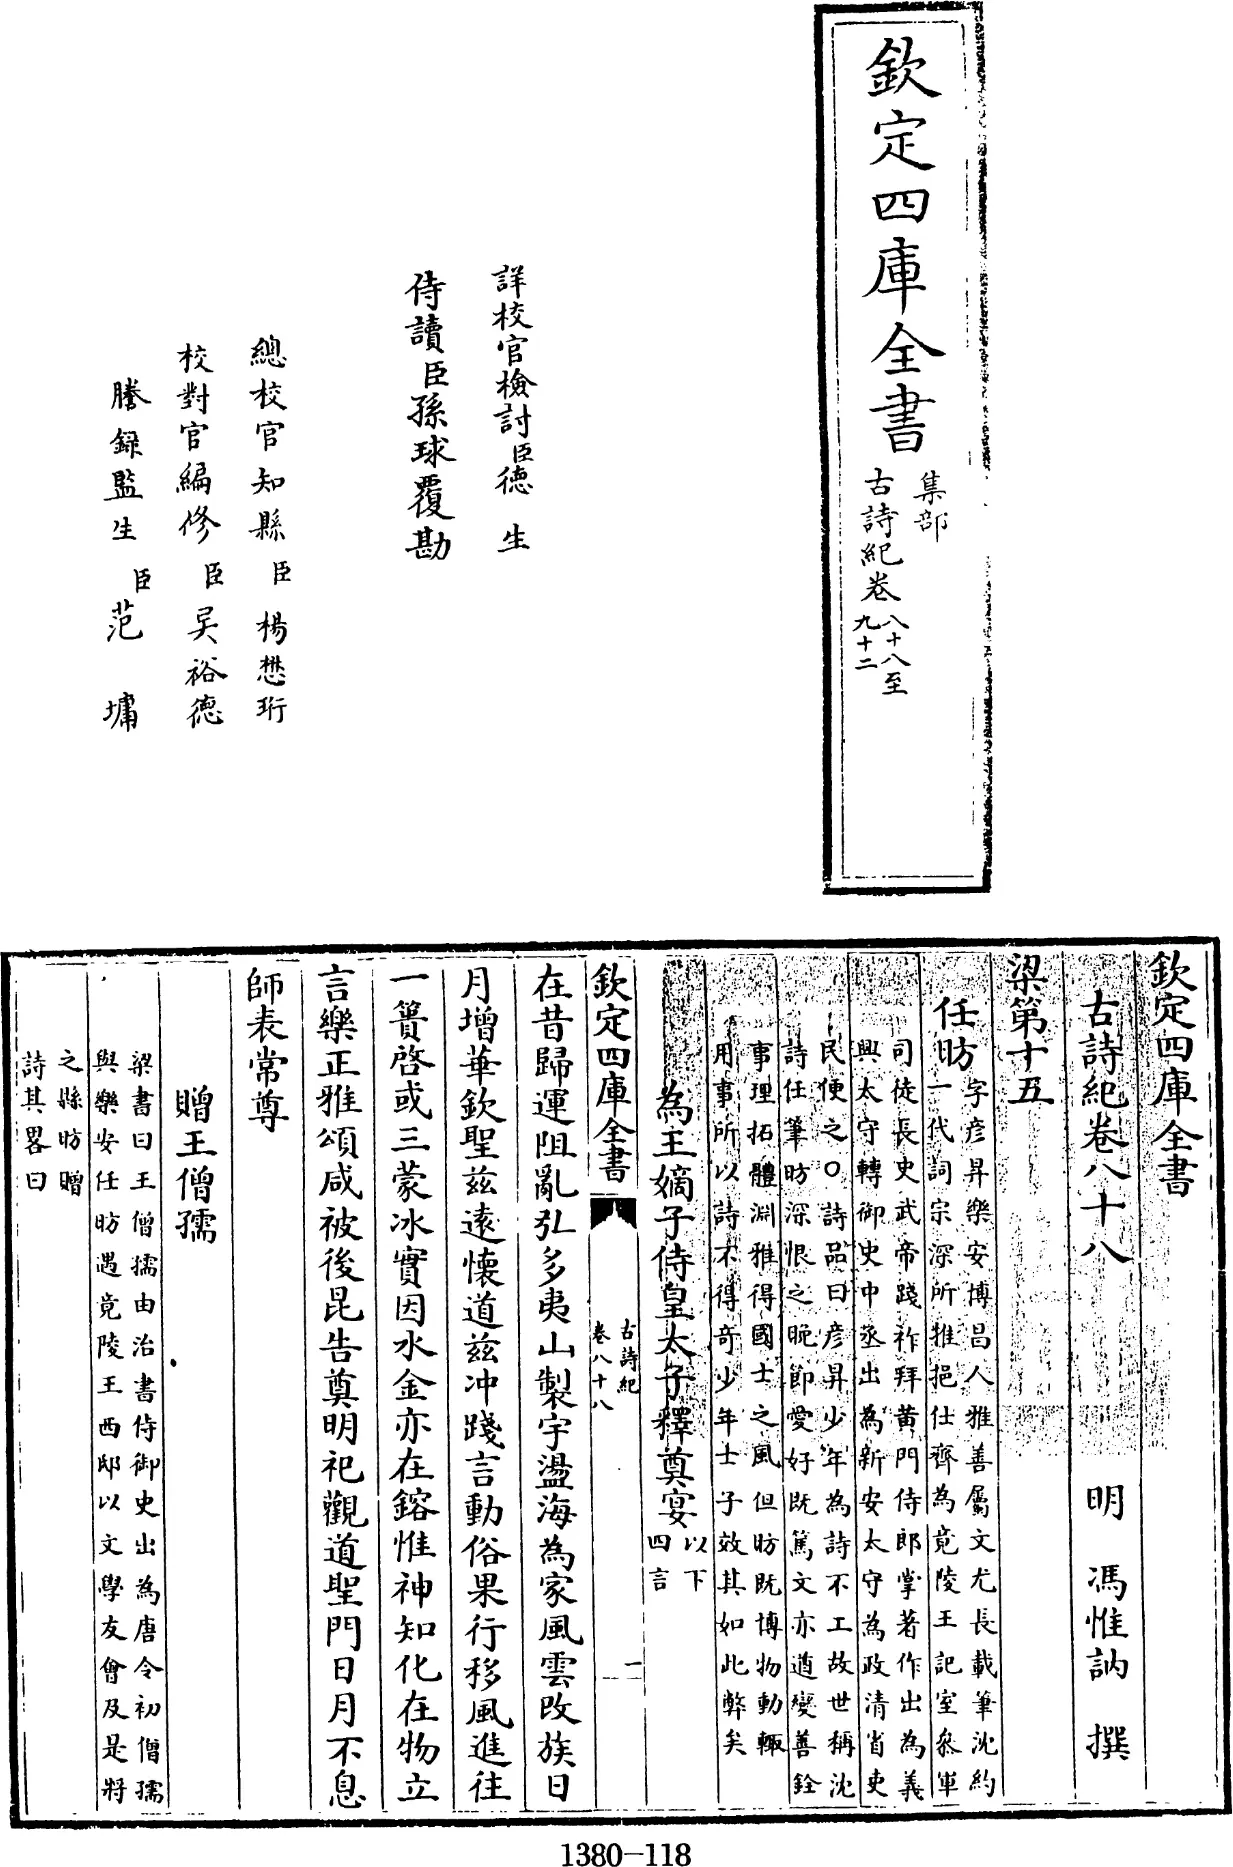 欽定四庫全書
集部
古詩紀卷
八十八至
九十二
詳校官檢討臣德生
侍讀臣孫球覆勘
總校官知縣臣楊懋珩
校對官編修臣吳裕德
謄錄監生臣范墉
欽定四庫全書
古詩紀卷八十八
明 馮惟訥 撰
梁第十五
任昉
字彦昇樂安博昌人雅善屬文尤長載筆沈約
一代詞宗深所推挹仕齊為竟陵王記室叅軍
司徒長史武帝踐祚拜黄門侍郎掌著作出為義
興太守轉御史中丞出為新安太守為政清省吏
民便之○詩品曰彦昇少年為詩不工故世稱沈
詩任筆昉深恨之晚節愛好既篤文亦遒變善銓
事理拓體淵雅得國士之風但昉既博物動輒
用事所以詩不得奇少年士子效其如此弊矣
為王嫡子侍皇太子釋奠宴
以下
四言
欽定四庫全書
古詩紀
卷八十八
一
在昔歸運阻亂弘多夷山製宇盪海為家風雲改族日
月增華欽聖兹遠懷道兹沖踐言動俗果行移風進往
一簣啓或三蒙冰實因水金亦在鎔惟神知化在物立
言樂正雅頌咸被後昆告奠明祀觀道聖門日月不息
師表常尊
贈王僧孺
梁書曰王僧孺由治書侍御史出為唐令初僧孺
與樂安任昉遇竟陵王西邸以文學友會及是將
之縣昉贈
詩其畧曰
1380-118